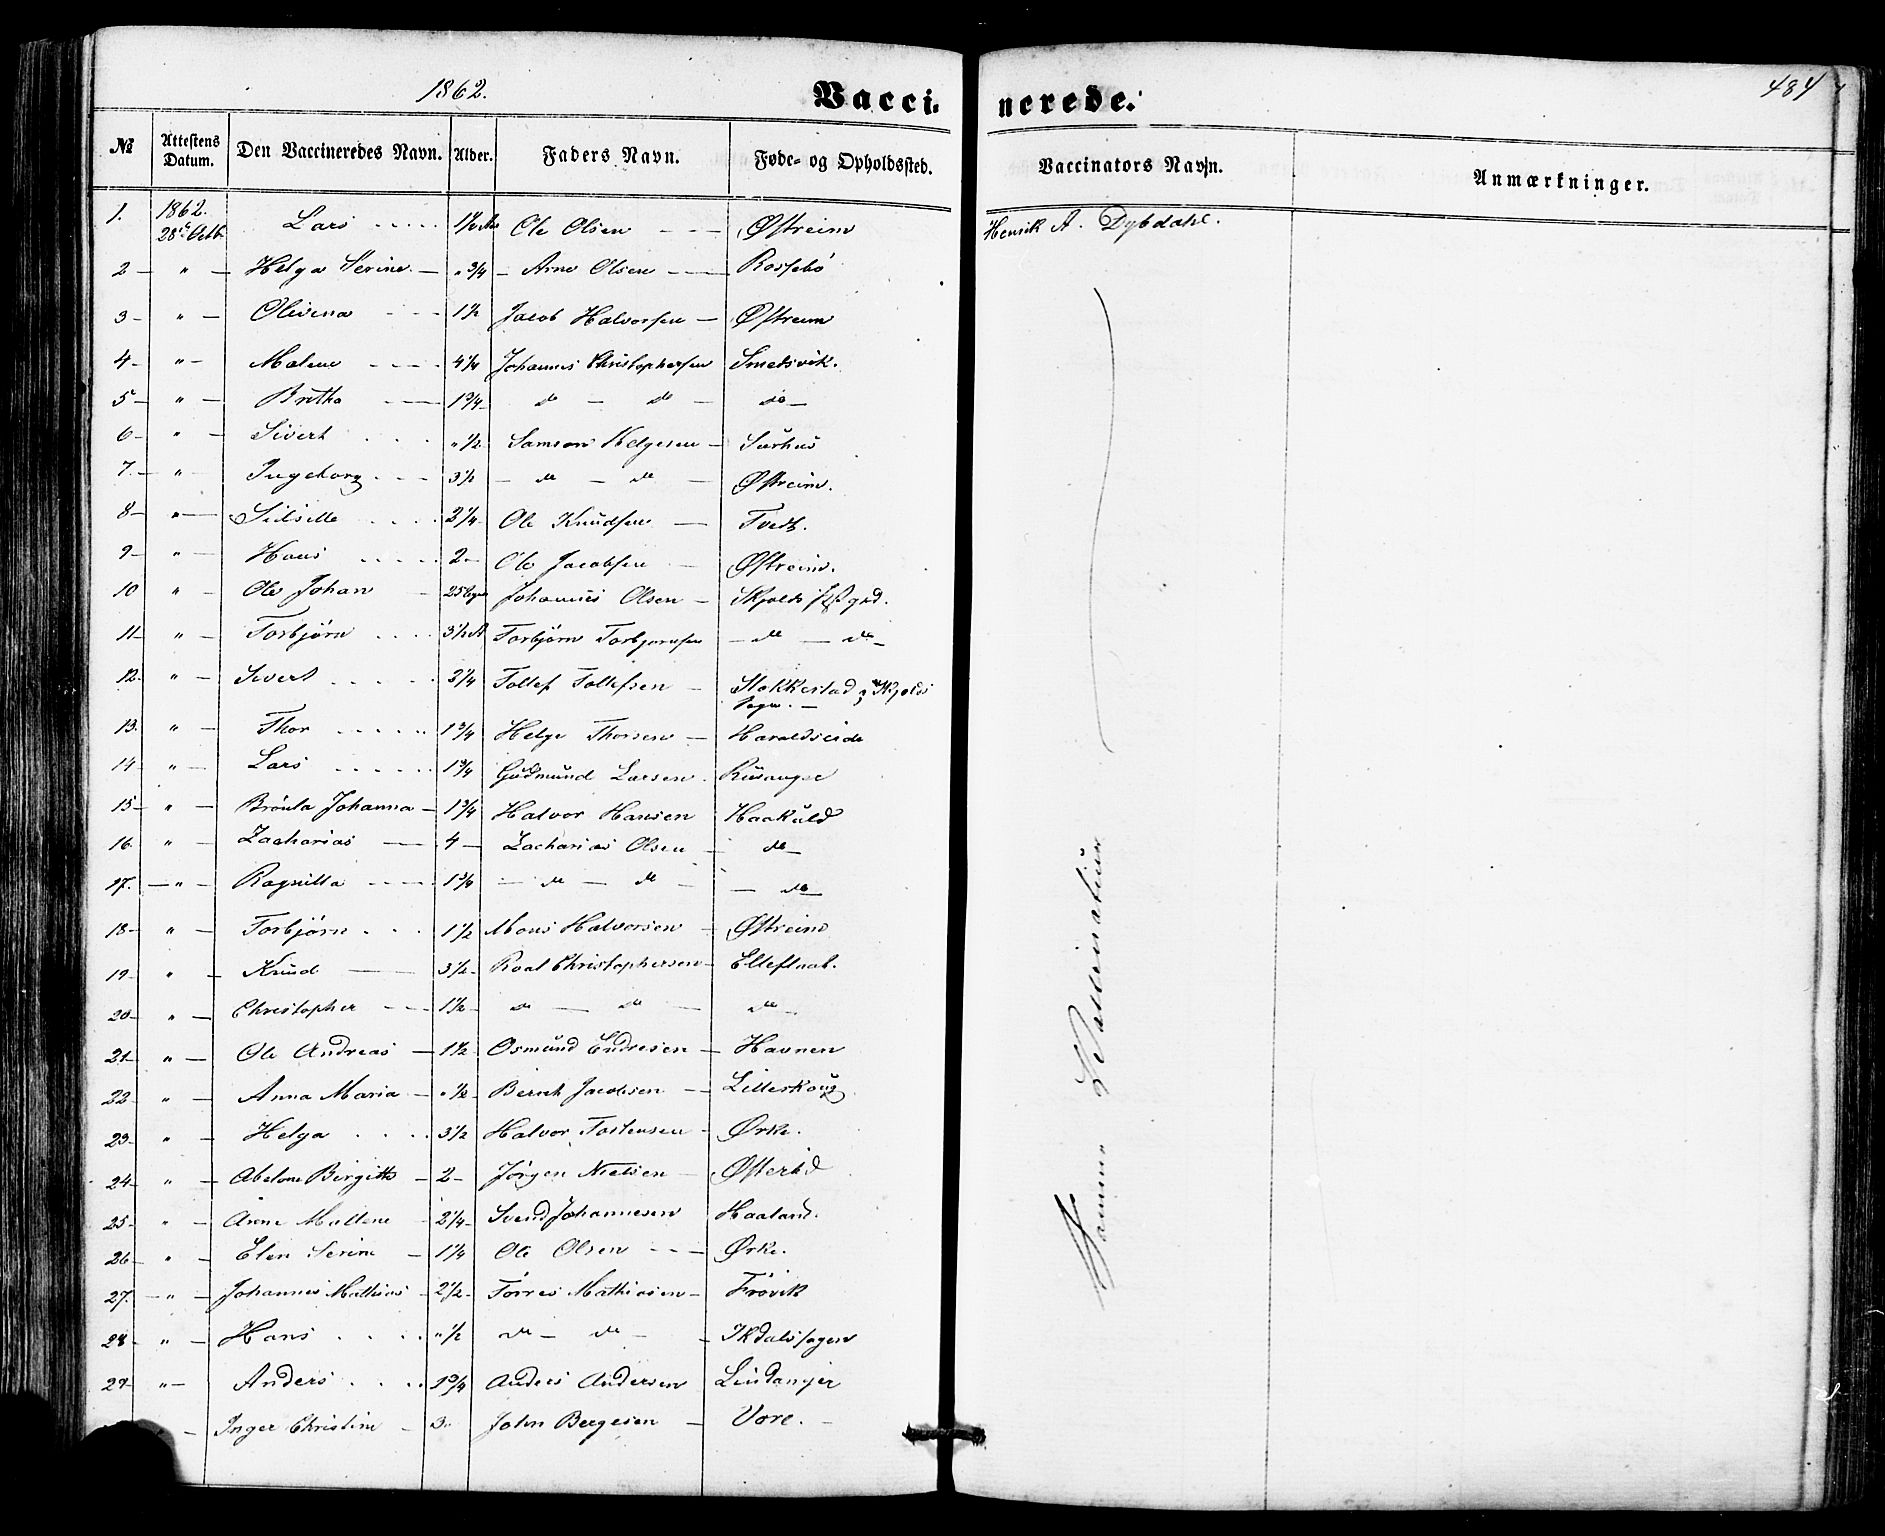 1862.
484
Vaccinerede.
№ Attestens Datum. Den Vaccineredes Navn. Alder. Faders Navn. Føde- og Opholdssted. Vaccinators Navn. Anmærkninger.
1. 1862. 28de Octb. Lars Ole Olsen Østreim Henrik A. Dybdahl.
2 " Helga Serine " 3/4 Arne Olsen Rossebö
3 " Olivina 1 1/2 Jacob Halvorsen Østreim
4 " Malene 4 1/4 Johannes Christophersen Smedsvik.
5 " Britha 1 3/4 do do do
6 " Sivert " 1/2 Samson Helgesen
7. " Ingeborg 3 1/2 do do Østreim.
8 " 2 1/4 Ole Knudsen Tvedt.
9 " Hans 2 Ole Jacobsen Østreim.
10 " Ole Johan 25 Johannes Olsen Skjolds
11 " Torbjörn 3 1/2 A Torbjörn Torbjørnsen do do
12. " Sivert 2 1/4 Tollef Tollefsen Stokkestad Skjolds Sogn.
13. " Thor 1 3/4 Helge Thorsen Haraldseide
14 " Lars 1 3/4 Gudmund Larsen
15 " Johanna 1 3/4 Halvor Hansen Haakuld
16 " Zacharias 4 Zacharias Olsen do
17. " Ragnilla 1 3/4 do do do
18 " Torbjörn 1 1/2 Mons Halvorsen Østreim
19 " Knud 3 1/2 Roal Christophersen
20 " Christopher 1 1/2 do do do
21 " Ole Andreas 1 1/2 Osmund Endresen Havnen
22 " Anna Maria " 1/2 Bernt Jacobsen Litleskoug
23 " Helga 3 1/2 Halvor Tostensen Ørke.
24 " Abelone Birgitte 2 Jörgen Nielsen
25 " Anne Mallene 2 1/4 Svend Johannesen Haaland.
26 " Elen Serine 1 1/4 Ole Olsen Ørke.
27. " Johannes Mathias 2 1/2 Törres Mathiasen Frövik
28 " Hans " 1/2 do do
29 " Anders 1 3/4 Anders Andersen Lindanger
Inger Christine 3 John Bergesen Vore.
Samme Vaccinateur